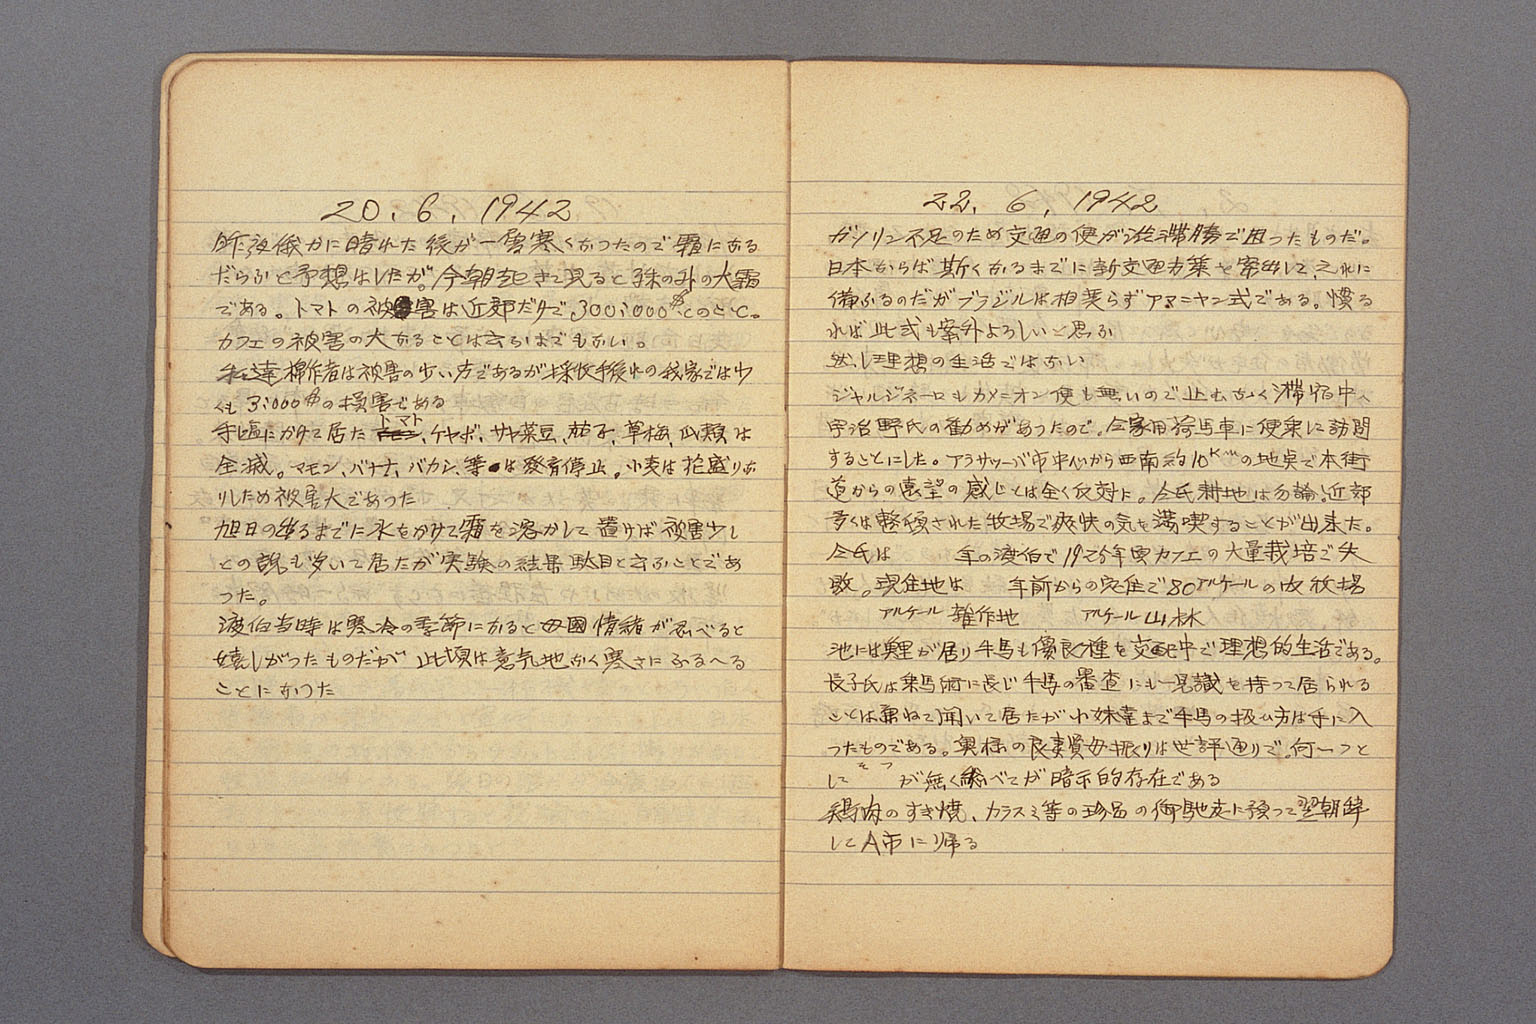 20. 6. 1942
昨夜俄かに晴れた後が一層寒くなつたので霜になる
だらふと予想はしたが。今朝起きて見ると珠のみの大霜
である。トマトの被害は近郊だけで300:000$とのこと。
カフェの被害の大なることは云ふまでもない。
棉作者は被害の少い方であるが採収手後れの我家では少
くも3:000$の損害である
手塩にかけて居たトマト、ケヤボ、サヤ菜豆、茄子、草苺、瓜類は
全滅。マモン、バナナ、バカシ、等は発育停止。小麦は花盛りな
りしため被害大であつた
旭日の登るまでに水をかけて霜を溶かして置けば被害少し
との説も多いて居たが実験の結果駄目と云ふことであ
つた。
渡伯当時は寒冷の季節になると母國情緒が忍べると
嬉しがつたものだが此頃は意気地なく寒さにふるへる
ことになつた
22. 6. 1942
ガソリン不足のため交通の便が渋滞勝で困つたものだ。
日本ならば斯くなるまでに新交通方策を案出して之れに
備ふるのだがブラジルは相変らずアマニヤン式である。慣る
れば此式も案外よろしいと思ふ
然し理想の生活ではない
ジャルジネーロもカメニオン便も無いので止むなく滞宿中へ
宇治野氏の勧めがあつたので。今家用荷馬車に便乗し訪問
することにした。アラサツーバ市中心から西南約10Kmの地点で本街
道からの展望の感じとは全く反対に。今氏耕地は勿論近郊
多くは整頓された牧場で爽快の気を満喫することが出来た。
今氏は 年の渡伯で1925年頃カフェの大量栽培で失
敗。現住地は 年前からの定住で80アルケールの内牧場
アルケール雑作地 アルケール山林
池には鯉が居り牛馬も優良種を交配中で理想的生活である。
長子氏は乗馬術に長じ牛馬の審査にも一見識を持つて居られる
ことは兼ねて聞いて居たが小妹達まで牛馬の扱ひ方は手に入
つたものである。奥様の良妻賢母振りは世評通りで。何一つと
してそつが無く総べてが暗示的存在である
鶏肉のすき焼、カラスミ等の珍品の御馳走に預つて翌朝辞
してA市に帰る